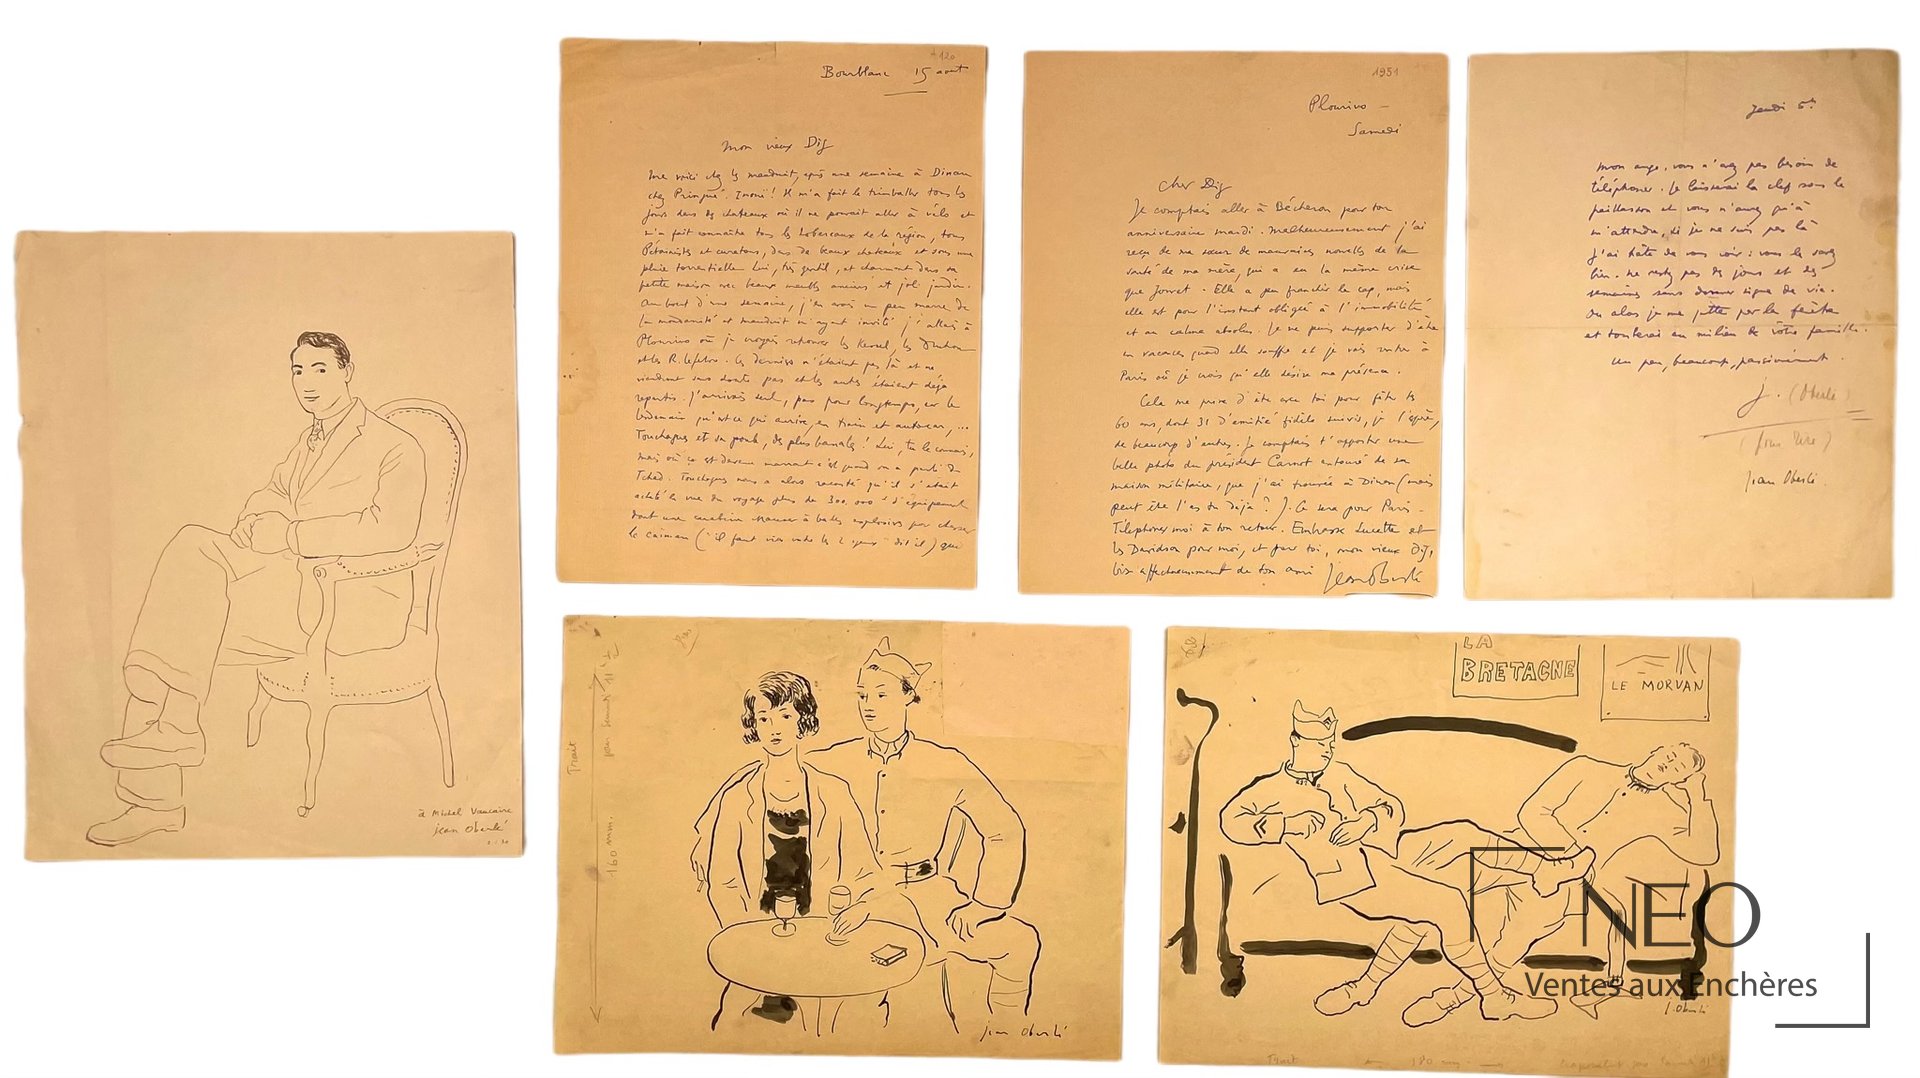 à Michel Vaucaire
jean Oberlé
Bourblanc 15 aout
Mon vieux Dig
Me voici chez les Mauduit, après une semaine à Dinan
chez Pringué. Inouï! Il m'a fait le trimballer tous les
jours dans des chateaux où il ne pouvait aller à vélo et
m'a fait connaître tous les hobereaux de la région, tous
Pétainistes et curetons, dans de beaux chateaux et sous une
pluie torrentielle. Lui, très gentil, et charmant dans sa
petite maison avec beaux meubles anciens et joli jardin.
Au bout d'une semaine, j'en avais un peu marre de
la mondanité et Mauduit m'ayant invité j'allais à
Plourivo où je croyais retrouver les
et les R. Lefebvre. Ces derniers n'étaient pas là et ne
viendront sans doute pas et les autres étaient déjà
repartis. J'arrivais seul, pas pour longtemps, car le
lendemain qu'est ce qui arrive, en train et autocar, ...
Touchagues et sa poule, des plus banales! Lui, tu le connais,
mais où ça est devenu marrant c'est quand on a parlé du
Tchad. Touchagues nous a alors raconté qu'il s'était
acheté en vue du voyage plus de 300.000 d'équipement
dont une carabine Mauser à balles explosives pour chasser
le caïman ("il faut viser entre les 2 yeux" dit il) que
1951
Plourivo -
Samedi
Cher Dig
Je comptais aller à Bécheron pour ton
anniversaire mardi. Malheureusement j'ai
reçu de ma sœur de mauvaises nouvelles de la
santé de ma mère, qui a eu la même crise
que Jouvet. Elle a pu franchir le cap, mais
elle est pour l'instant obligée à l'immobilité
et au calme absolus. Je ne puis supporter d'être
en vacances quand elle souffre et je vais rentrer à
Paris où je crois qu'elle désire ma présence.
Cela me prive d'être avec toi pour fêter tes
60 ans, dont 31 d'amitié fidèle suivis, je l'espère,
de beaucoup d'autres. Je comptais t'apporter une
belle photo du président Carnot entouré de sa
maison militaire, que j'ai trouvée à Dinan (mais
peut être l'as tu déjà?). Ce sera pour Paris.
Téléphone moi à ton retour. Embrasse Lucette et
les Davidson pour moi, et pour toi, mon vieux Dig,
bien affectueusement de ton ami Jean Oberlé
Jeudi 5h
Mon ange, vous n'avez pas besoin de
téléphoner. Je laisserai la clef sous le
paillasson et vous n'aurez qu'à
m'attendre, si je ne suis pas là
J'ai hâte de vous voir: vous le savez
bien. Ne restez pas des jours et des
semaines sans donner signe de vie.
Ou alors je me jette par la fenêtre
et tomberai au milieu de votre famille.
Un peu, beaucoup, passionnément.
J. (Oberlé)
(pour rire)
Jean Oberlé.
Trait
160 mm.
jean Oberlé
LA
BRETAGNE
LE MORVAN
J. Oberlé
Trait 180 mm
NEO
Ventes aux Enchères